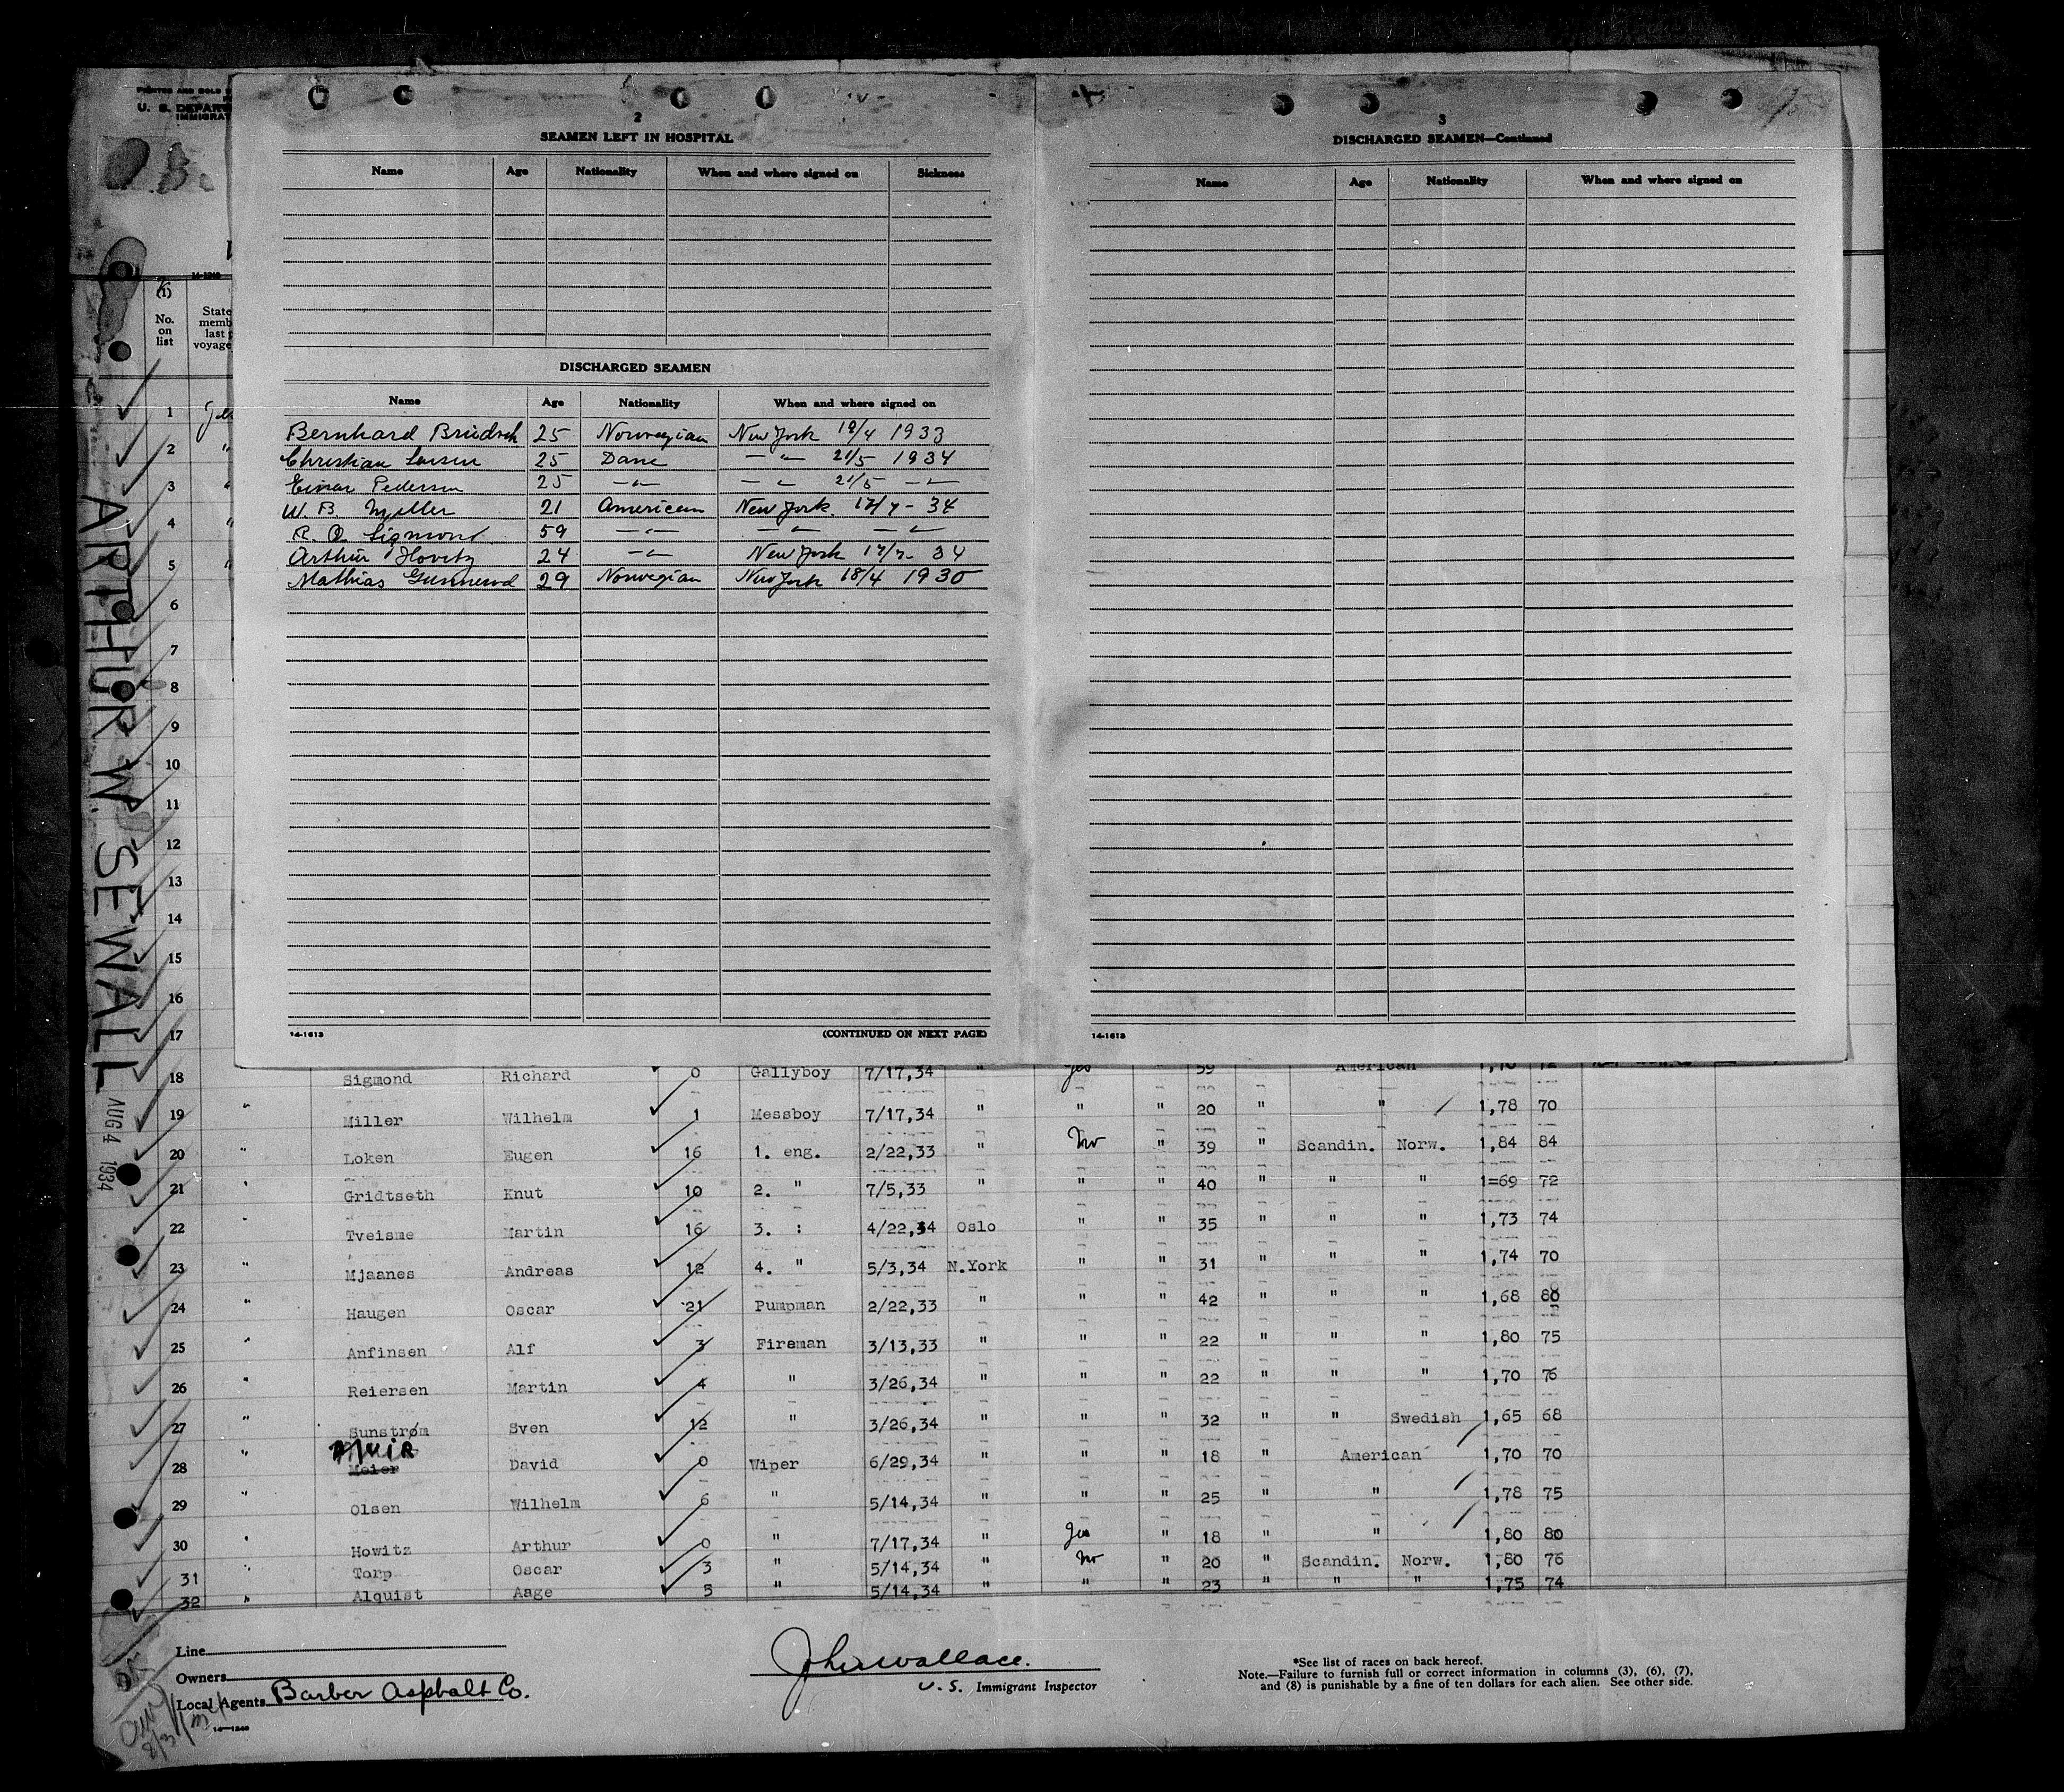 U. S. DEPAR
IMMIGRAT
2
SEAMEN LEFT IN HOSPITAL
Name Age Nationality When and where signed on Sickness
DISCHARGED SEAMEN
Name Age Nationality When and where signed on
Bernhard 25 Norwegian New York 1933
Christian Larsen 25 Dane — " — 21/5 1934
Einar Pedersen 25 — " — — " — 21/5 — " —
W. B. Møller 21 American New York. 17/7 - 34
R. O. Sigmond 59 — " — — " — — " —
Arthur Hovitz 24 — " — New York 17/7 - 34
Mathias Gunnerod 29 Norwegian New York 18/4 1930
14-1613
(CONTINUED ON NEXT PAGE)
3
DISCHARGED SEAMEN—Continued
Name Age Nationality When and where signed on
14-1613
(1)
No. on list
State
memb
last p
voyage
ARTHUR W. SEWALL
AUG 4 1934
1
2 "
3 "
4 "
5 "
6
7
8
9
10
11
12
13
14
15
16
17
18 Sigmond Richard 0 Gallyboy 7/17,34 " yes " 59 American 1,70 72
19 " Miller Wilhelm 1 Messboy 7/17,34 " " " 20 " " 1,78 70
20 " Loken Eugen 16 1. eng. 2/22,33 " No " 39 " Scandin. Norw. 1,84 84
21 " Gridtseth Knut 10 2. " 7/5,33 " " " 40 " " " 1=69 72
22 " Tveisme Martin 16 3. : 4/22,34 Oslo " " 35 " " " 1,73 74
23 " Mjaanes Andreas 12 4. " 5/3,34 N.York " " 31 " " " 1,74 70
24 " Haugen Oscar 21 Pumpman 2/22,33 " " " 42 " " " 1,68 80
25 " Anfinsen Alf 3 Fireman 3/13,33 " " " 22 " " " 1,80 75
26 " Reiersen Martin 4 " 3/26,34 " " " 22 " " " 1,70 76
27 " Sunstrøm Sven 12 " 3/26,34 " " " 32 " " Swedish 1,65 68
MUIR
28 " Meier David 0 Wiper 6/29,34 " " " 18 " American 1,70 70
29 " Olsen Wilhelm 6 " 5/14,34 " " " 25 " " 1,78 75
30 " Howitz Arthur 0 " 7/17,34 " yes " 18 " " 1,80 80
31 " Torp Oscar 3 " 5/14,34 " No " 20 " Scandin. Norw. 1,80 76
32 " Alquist Aage 5 " 5/14,34 " " " 23 " " " 1,75 74
Line
Owners
Local Agents Barber Asphalt Co.
14—1240
John Wallace.
U. S. Immigrant Inspector
*See list of races on back hereof.
Note.—Failure to furnish full or correct information in columns (3), (6), (7),
and (8) is punishable by a fine of ten dollars for each alien. See other side.